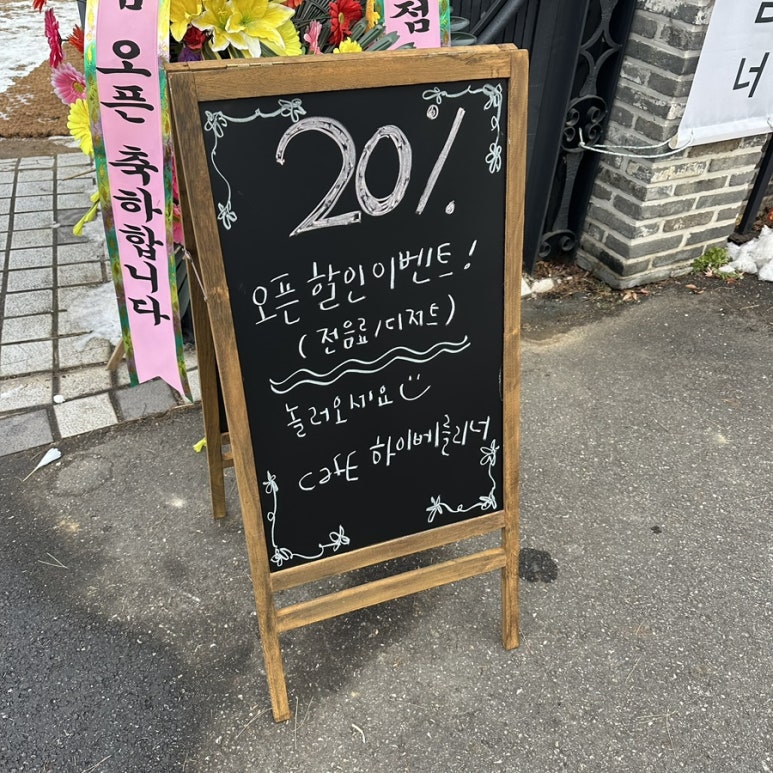 20%
오픈 할인 이벤트!
(전음료/디저트)
놀러오세요
cafe 하이베를리너
오픈 축하합니다
점
너